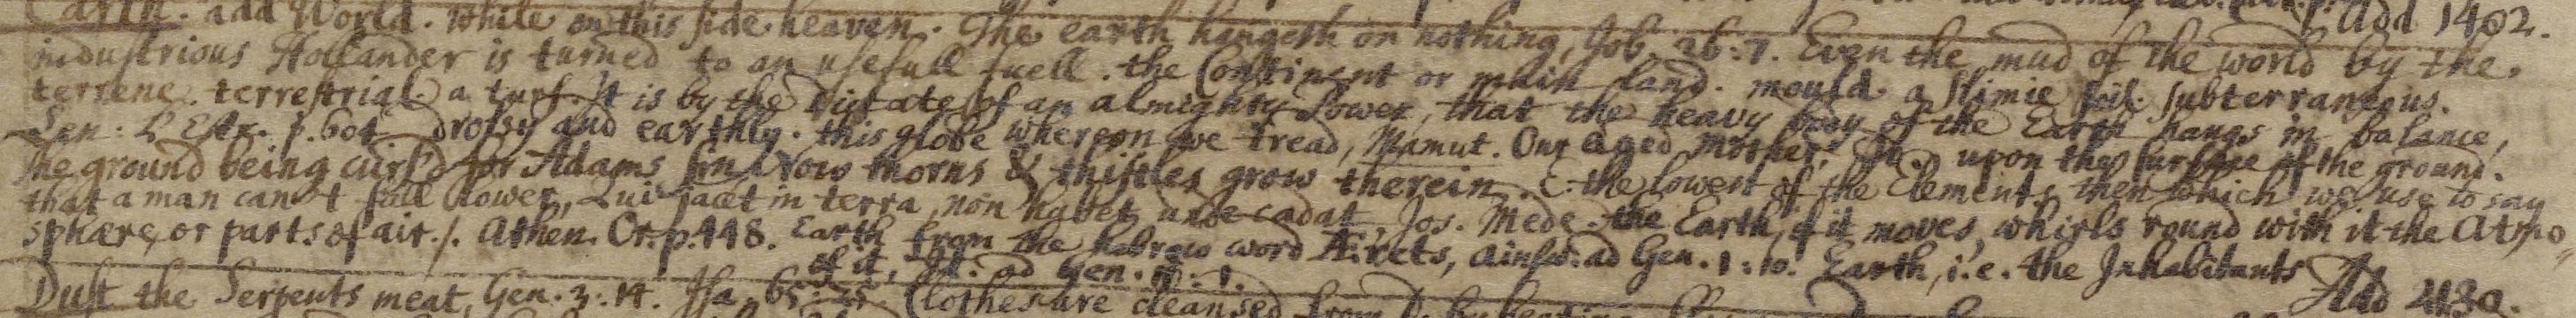 Earth. add World. While on this side heaven. The earth hangeth on nothing, Job. 26.7. Even the mud of the world by the Add 1402.
industrious Hollander is turned to an usefull fuell. the Continent or main land. mould. a slimie soil. subterraneous.
terrene. terrestrial. a turf. It is by the Dictate of an almighty Power, that the heavy body of the Earth hangs in balance,
Sen: L'Estr. p.604 drossy and earthly. this globe whereon we tread, Mamut. Our aged mother, upon the surface of the ground.
The ground being curs'd for Adams sin Now thorns & thistles grow therein. E. the lowest of the Elements then which we use to say
that a man can't fall lower, Qui jacet in terra, non habet unde cadat, Jos. Mede. the Earth, if it moves, whirls round with it the Atmo
sphære, or parts of air./. Athen. Or. p.448. Earth from the hebrew word A.rets, Ainsw. ad Gen. 1:10. Earth, i.e. the Inhabitants
of it, ad Gen. 11.1. Add 4130.
Dust the Serpents meat, Gen. 3:14. Isa. 65:25. Clothes are cleansed from D. by beating